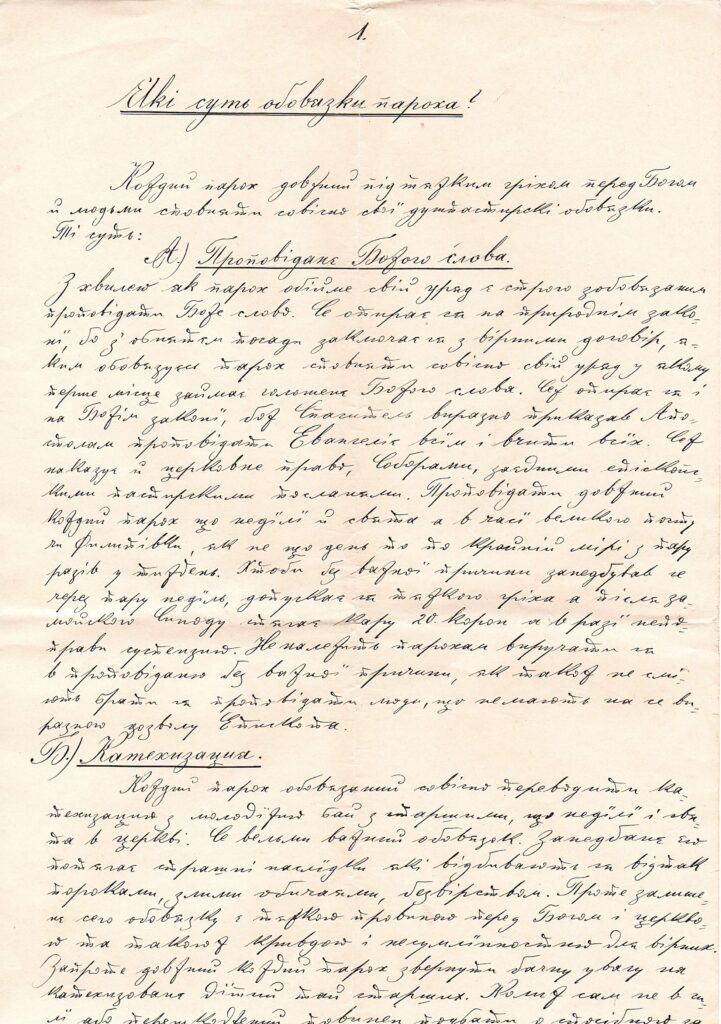 1.
Які суть обовязки пароха?
Кождий парох довжний під тяжким гріхом перед Богом
и людьми сповняти совісно свої душпастирскі обовязки.
Ті суть:
А.) Проповіданє Божого слова.
З хвилею як парох обійме свій уряд є строго зобовязаний
проповідати Боже слово. Се опирає ся на природнім зако-
ні, бо з обнятєм посади заключає ся з вірними договір, я-
ким обовязуєсь парох сповняти совісно свій уряд у якому
перше місце займає голошенє Божого слова. Сеж опирає ся і
на Божім законі, бож Спаситель виразно приказав Апо-
столам проповідати Евангеліє всїм і вчити всїх. Сеж
наказує и церковне право, Соборами, заєдними епіскоп-
скими пастирскими посланями. Проповідати довжний
кождий парох що неділї и свята а в часї великого посту
чи Филипівки, як не що день то по крайній мірі з пару
разів у тиждень. Хтоби без важної причини занедбував се
через пару недїль, допускає ся тяжкого гріха а після за-
мойского Синоду стягає кару 20. корон а в разї непо-
прави суспензию. Не належить парохам виручати ся
в проповіданю без важної причини, як також не смі-
ють брати ся проповідати люди, що немають на се ви-
разного дозволу Епископа.
Б.) Катехизация.
Кождий парох обовязаний совісно переводити ка-
техизацию з молодїжию бай з старшими, що неділї і свя-
та в церкві. Се вельми важний обовязок. Занедбанє єго
потягає страшні наслїдки які відбивають ся відтак
пороками, злими обичаями, безвірством. Проте залише-
нє сего обовязку є тяжкою провиною перед Богом і церкво-
ю та такоюж кривдою і несумлінностию для вірних.
Запроте довжний кождий парох звернути бачну увагу на
катехизованє дїтий тай старших. Колиж сам не в си-
лї або перешкоджений повинен подбати о спосібного за-